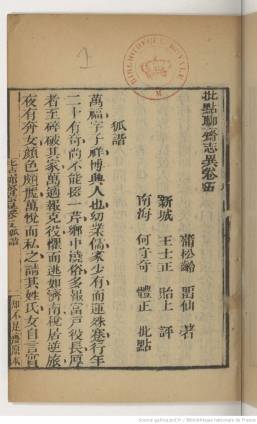 批點聊齋志異卷五
蒲松齡 留仙 著
新城 王士正 貽上 評
南海 何守奇 體正 批點
狐諧
萬福字子祥博興人也幼業儒家少有而運殊蹇行年
二十有奇尚不能掇一芹鄉中澆俗多報富戶役長厚
者至碎破其家萬適報充役懼而逃如濟南稅居逆旅
夜有奔女顏色頗麗萬悅而私之請其姓氏女自言實
知不足齋原本
BIBLIOTHEQUE
1
Source gallica.bnf.fr / Bibliothèque nationale de France